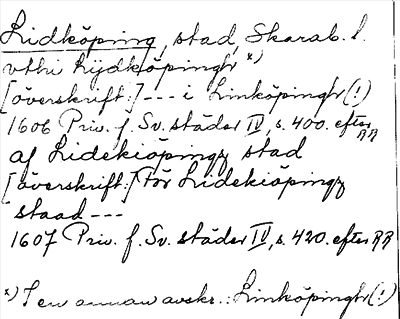 Lidköping, stad, Skarab. l.
vthi Lijdköpingh *)
[överskrift:] --- i Linköpingh (!)
1606 Priv. f. Sv. städer IV, s. 400. efter RR
af Lidekiöpingz stad
[överskrift:] för Lidekiöpingz
staad ---
1607 Priv. f. Sv. städer IV, s. 420. efter RR
*) I en annan avskr.: Linköpingh (!)